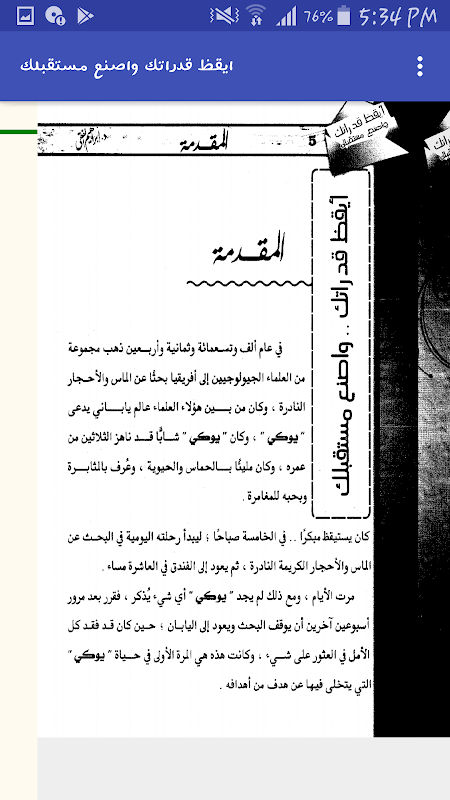 76% 5:34 PM
ايقظ قدراتك واصنع مستقبلك
أيقظ قدراتك
واصنع مستقبلك
5 المقدمة د. إبراهيم الفقي
أيقظ قدراتك .. واصنع مستقبلك
المقدمة
في عام ألف وتسعمائة وثمانية وأربعين ذهب مجموعة
من العلماء الجيولوجيين إلى أفريقيا بحثًا عن الماس والأحجار
النادرة ، وكان من بين هؤلاء العلماء عالم ياباني يدعى
" يوكي " ، وكان " يوكي " شابًّا قد ناهز الثلاثين من
عمره ، وكان مليئًا بالحماس والحيوية ، وعُرف بالمثابرة
وبحبه للمغامرة .
كان يستيقظ مبكرًا .. في الخامسة صباحًا ؛ ليبدأ رحلته اليومية في البحث عن
الماس والأحجار الكريمة النادرة ، ثم يعود إلى الفندق في العاشرة مساء .
مرت الأيام ، ومع ذلك لم يجد " يوكي " أي شيء يُذكر ، فقرر بعد مرور
أسبوعين آخرين أن يوقف البحث ويعود إلى اليابان ؛ حين كان قد فقد كل
الأمل في العثور على شيء ، وكانت هذه هي المرة الأولى في حياة " يوكي "
التي يتخلى فيها عن هدف من أهدافه .